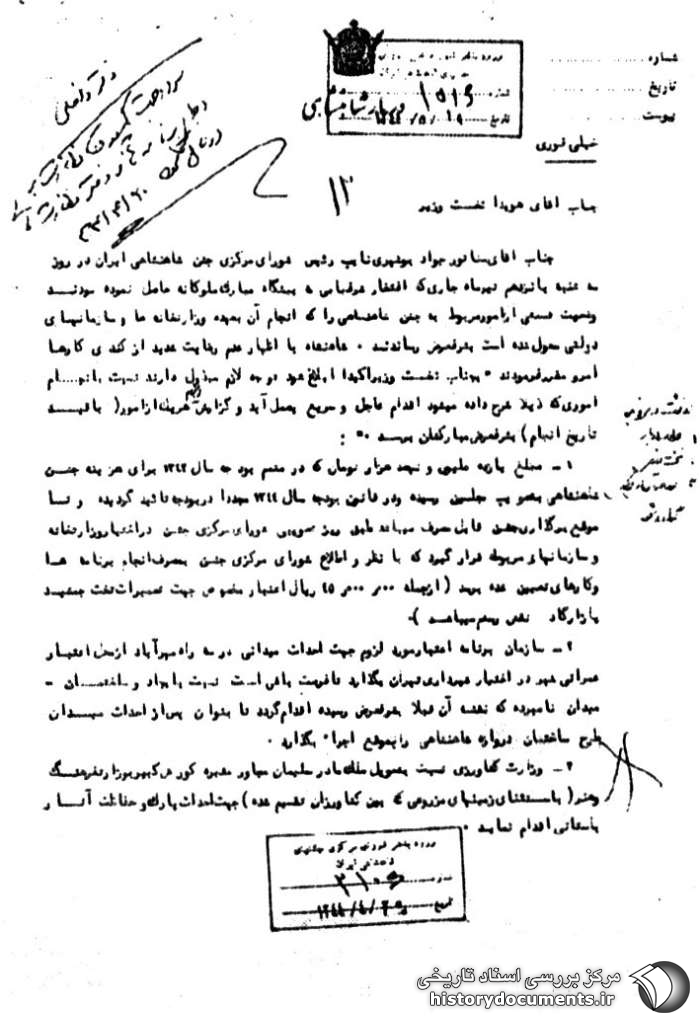 شماره
تاریخ
پیوست
خیلی فوری
شماره ۱۵۱۶
تاریخ ۱۳۴۴/۵/۱۹
دربار شاهنشاهی
دفتر داخلی
جناب آقای هویدا نخست وزیر
جناب آقای سناتور جواد بوشهری نایب رئیس شورای مرکزی جشن شاهنشاهی ایران در روز
سه شنبه پانزدهم تیرماه جاری که افتخار شرفیابی به پیشگاه مبارک ملوکانه حاصل نموده بودند
وضعیت قسمتی از امور مربوط به جشن شاهنشاهی را که انجام آن بعهده وزارتخانه ها و سازمانهای
دولتی محول شده است بشرفعرض رساندند . شاهنشاه با اظهار عدم رضایت شدید از کندی کارها
امر و مقرر فرمودند " بجناب نخست وزیر اکیدا ابلاغ شود توجه لازم مبذول دارند نسبت بانجام
اموری که ذیلا شرح داده میشود اقدام عاجل و سریع بعمل آید و گزارش هریک از امور ( با قید
تاریخ انجام ) بشرفعرض مبارکشان برسد " :
۱ - مبلغ یازده ملیون و نیصد هزار تومان که در متمم بودجه سال ۱۳۴۳ برای هزینه جشن
شاهنشاهی بتصویب مجلسین رسیده و در قانون بودجه سال ۱۳۴۴ مجددا در بودجه تائید گردیده و تا
موقع برگذاری جشن قابل مصرف میباشد طبق ریز مصوبی شورای مرکزی جشن در اختیار وزارتخانه
و سازمانهای مربوطه قرار گیرد که با نظر و اطلاع شورای مرکزی جشن بمصرف انجام برنامه ها
و کارهای تعیین شده برسد ( از جمله ۲۵٫۰۰۰٫۰۰۰ ریال اعتبار مخصوص جهت تعمیرات تخت جمشید
پازارگاد نقش رستم میباشد ) .
۲ - سازمان برنامه اعتبار مورد لزوم جهت احداث میدانی در سه راه مهرآباد از محل اعتبار
عمرانی شهر در اختیار شهرداری تهران بگذارد تا فرصت باقی است نسبت بایجاد و ساختمان -
میدان نامبرده که نقشه آن قبلا بشرفعرض رسیده اقدام گردد تا بتوان پس از احداث میدان
طرح ساختمان دروازه شاهنشاهی را بموقع اجرا بگذارد .
۳ - وزارت کشاورزی نسبت بتحویل ملک مادر سلیمان مجاور مقبره کورش کبیر بوزارت فرهنگ
و هنر ( باستثنای زمینهای مزروعی که بین کشاورزان تقسیم شده ) جهت احداث پارک و حفاظت آثار
باستانی اقدام نمایند .
ورود بدفتر شورای مرکزی جشنهای
شاهنشاهی ایران
شماره ۳۱۰۶
تاریخ
مرکز بررسی اسناد تاریخی
historydocuments.ir